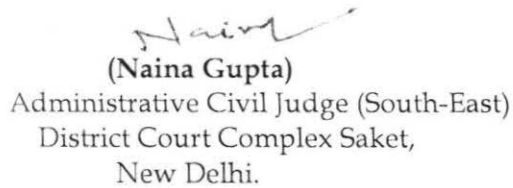 Naina
(Naina Gupta)
Administrative Civil Judge (South-East)
District Court Complex Saket,
New Delhi.